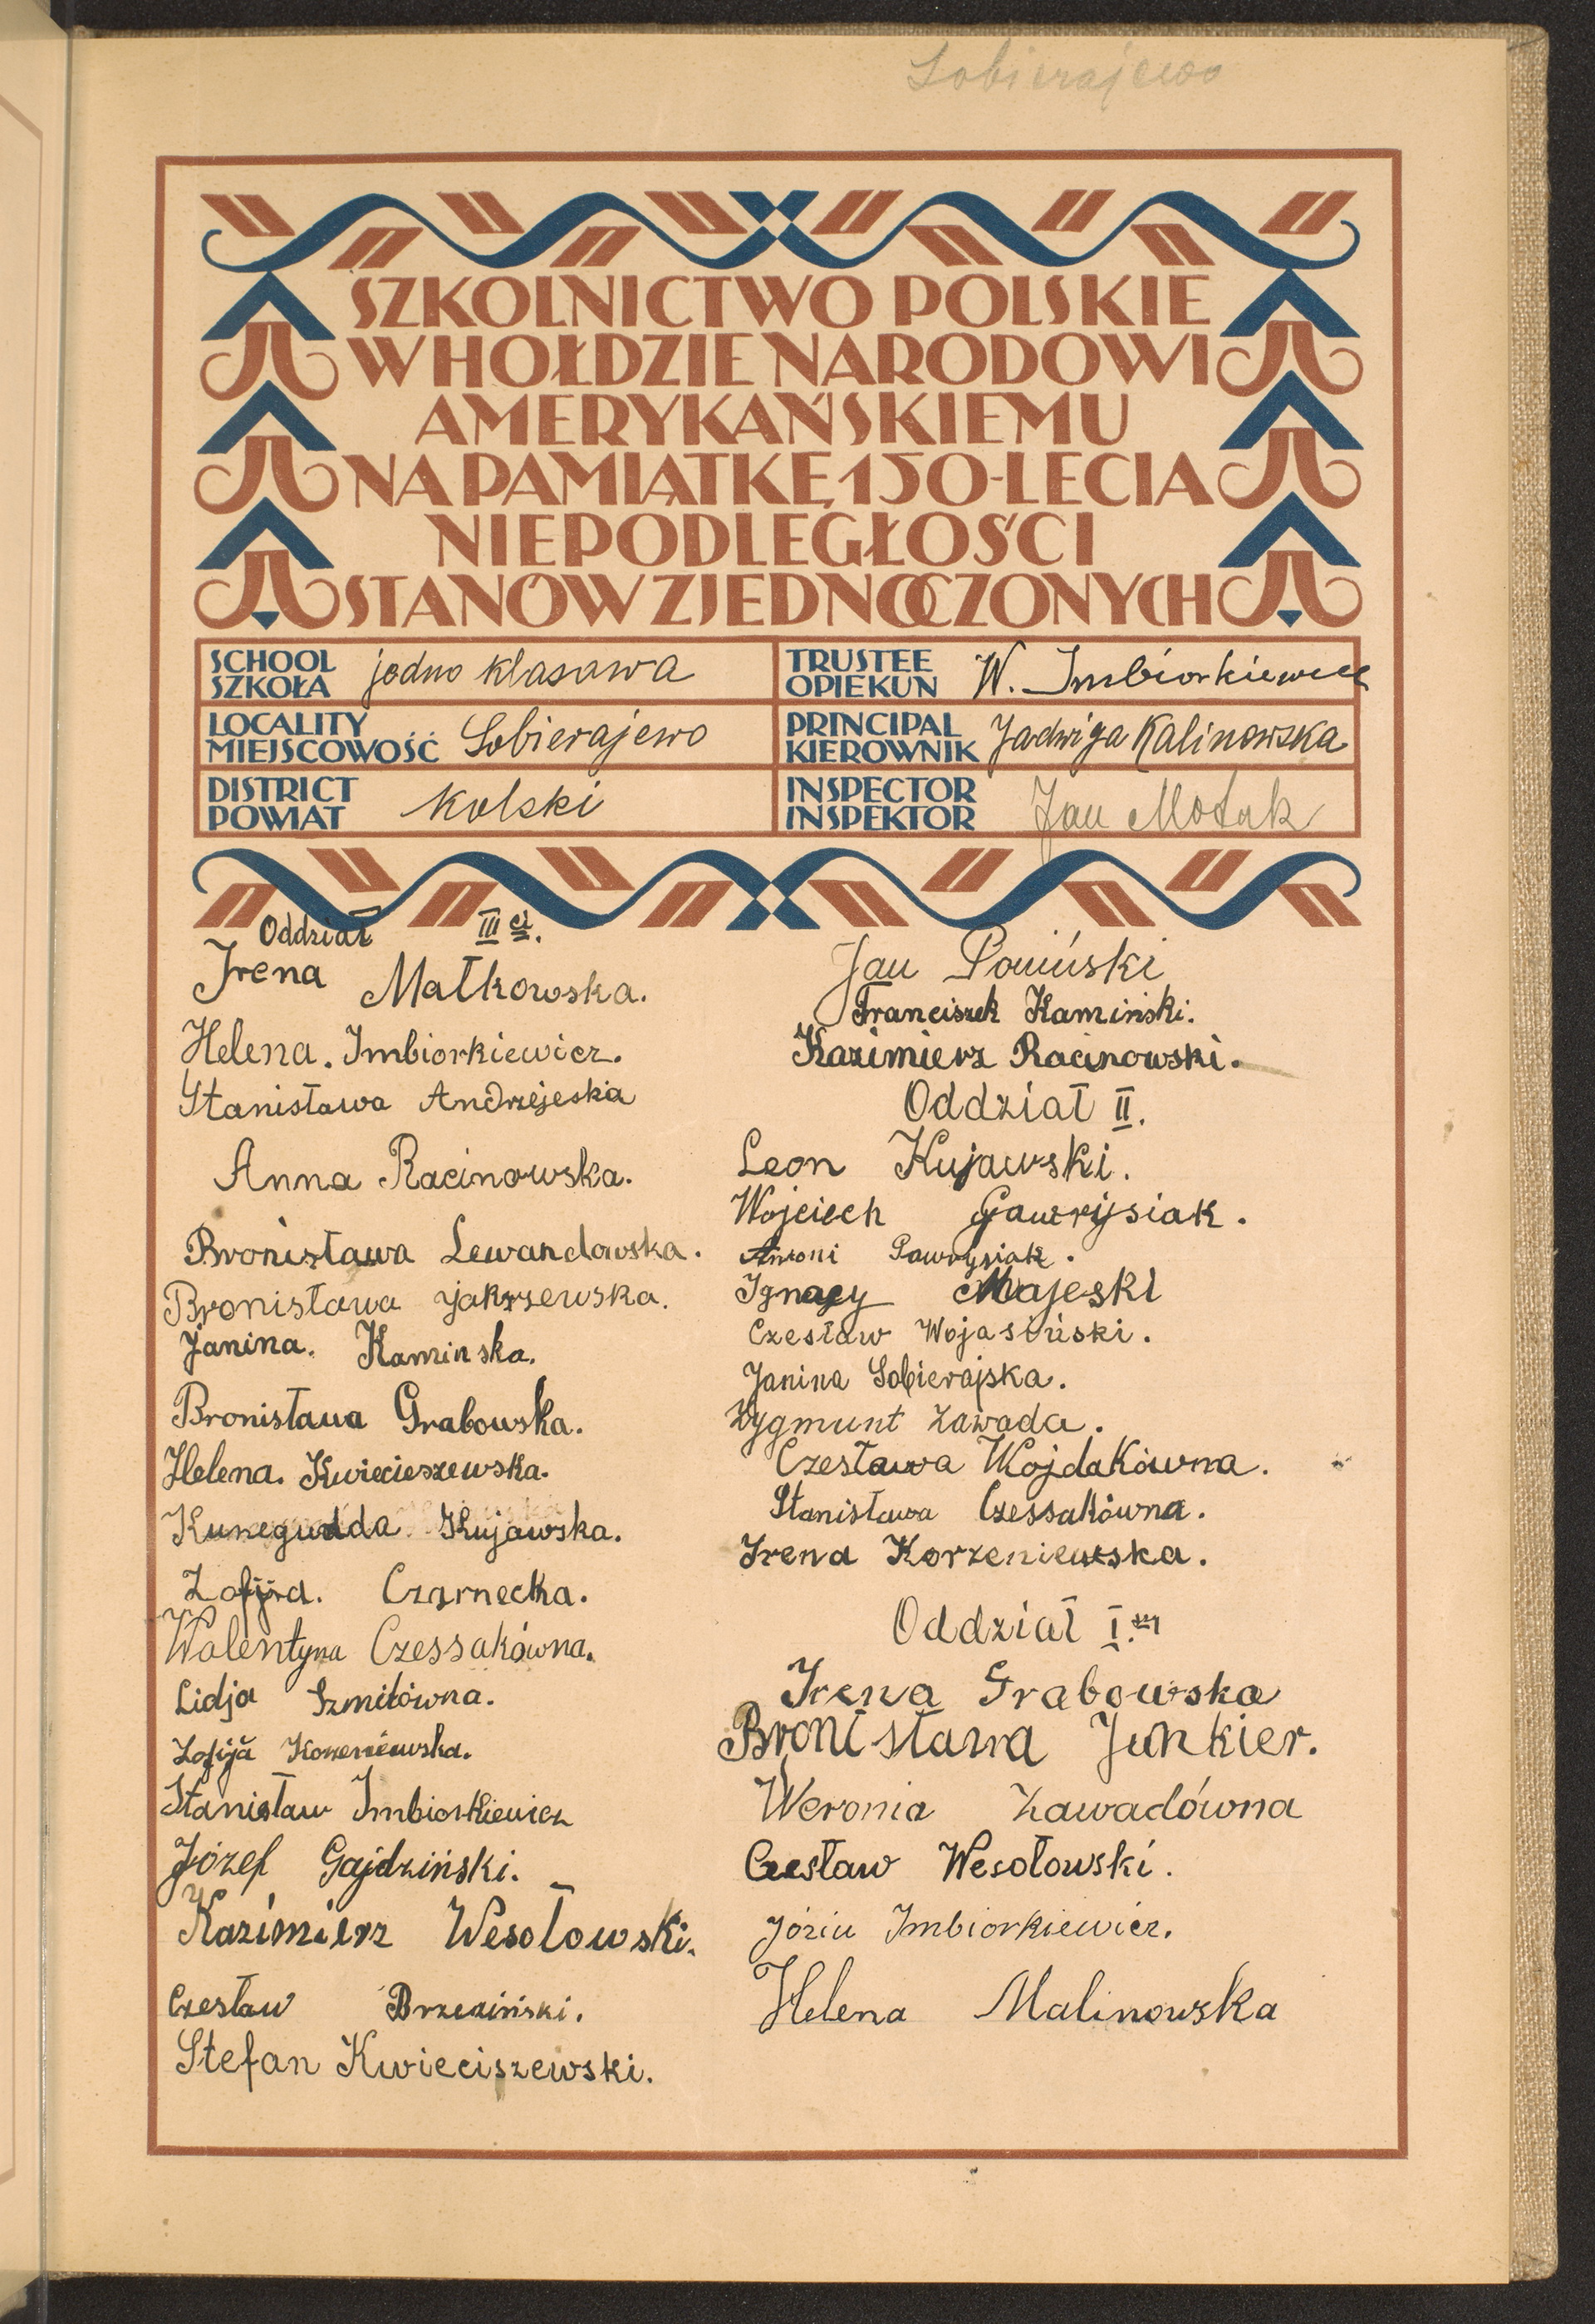 Sobierajewo
SZKOLNICTWO POLSKIE
W HOŁDZIE NARODOWI
AMERYKAŃSKIEMU
NA PAMIĄTKĘ 150-LECIA
NIEPODLEGŁOŚCI
STANÓW ZJEDNOCZONYCH
SCHOOL
SZKOŁA
jedno klasowa
TRUSTEE
OPIEKUN
W. Imbiorkiewicz
LOCALITY
MIEJSCOWOŚĆ
Sobierajewo
PRINCIPAL
KIEROWNIK
Jadwiga Kalinowska
DISTRICT
POWIAT
Kolski
INSPECTOR
INSPEKTOR
Jan
Oddział III ci.
Irena Małkowska.
Helena. Imbiorkiewicz.
Stanisława Andrzejeska
Anna Racinowska.
Bronisława Lewandowska.
Bronisława Jakrzewska.
Janina. Kaminska.
Bronisława Grabowska.
Helena. Kwiecieszewska.
Kunegudda Kujawska.
Zofija. Czarnecka.
Walentyna Czessakówna.
Lidja Szmitówna.
Zofija
Stanisław Imbiorkiewicz
Józef Gajdziński.
Kazimierz Wesołowski.
Czesław Brzeziński.
Stefan Kwieciszewski.
Jan Poniński
Franciszek Kamiński.
Kazimierz Racinowski.
Oddział II.
Leon Kujawski.
Wojciech Gawrysiak.
Antoni Gawrysiak.
Ignacy Majeski
Czesław Wojasiński.
Janina Sobierajska.
Zygmunt Zawada.
Czesława Wojdakówna.
Stanisława Czessakówna.
Irena Korzeniewska.
Oddział I.szy
Irena Grabowska
Bronisława Junkier.
Weronia Zawadówna
Czesław Wesołowski.
Józiu Imbiorkiewicz.
Helena Malinowska